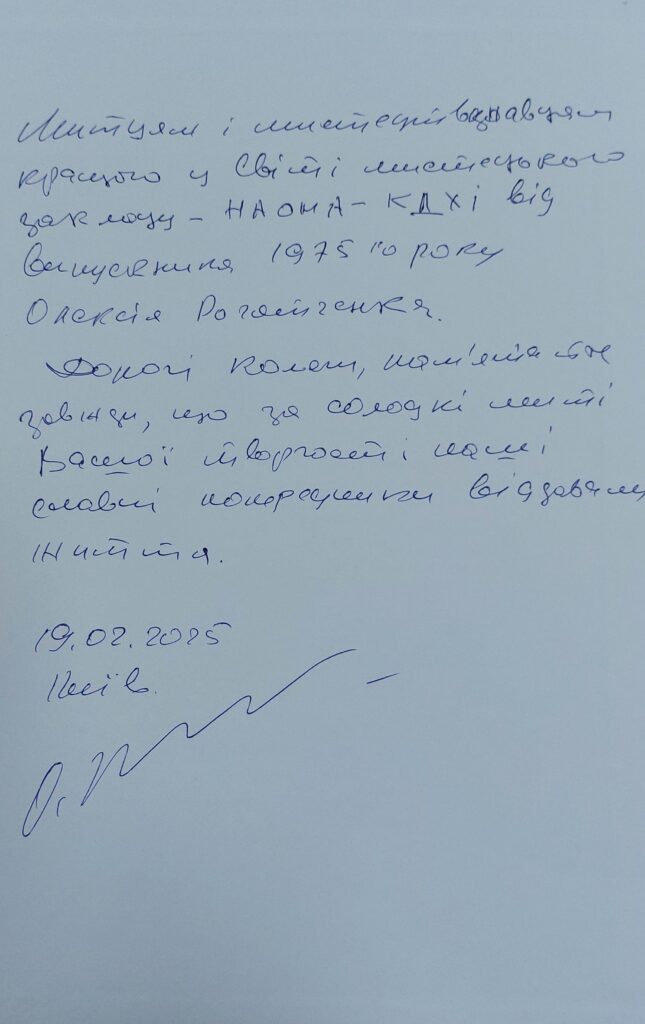 Митцям і мистецтвознавцям
кращого у Світі мистецького
закладу – НАОМА – КДХІ від
випускника 1975 го року
Олексія Роготченка.
Дорогі колеги, пам'ятайте
завжди, що за солодкі миті
Вашої творчості наші
славні попередники віддавали
життя.
19.02.2025
Київ.